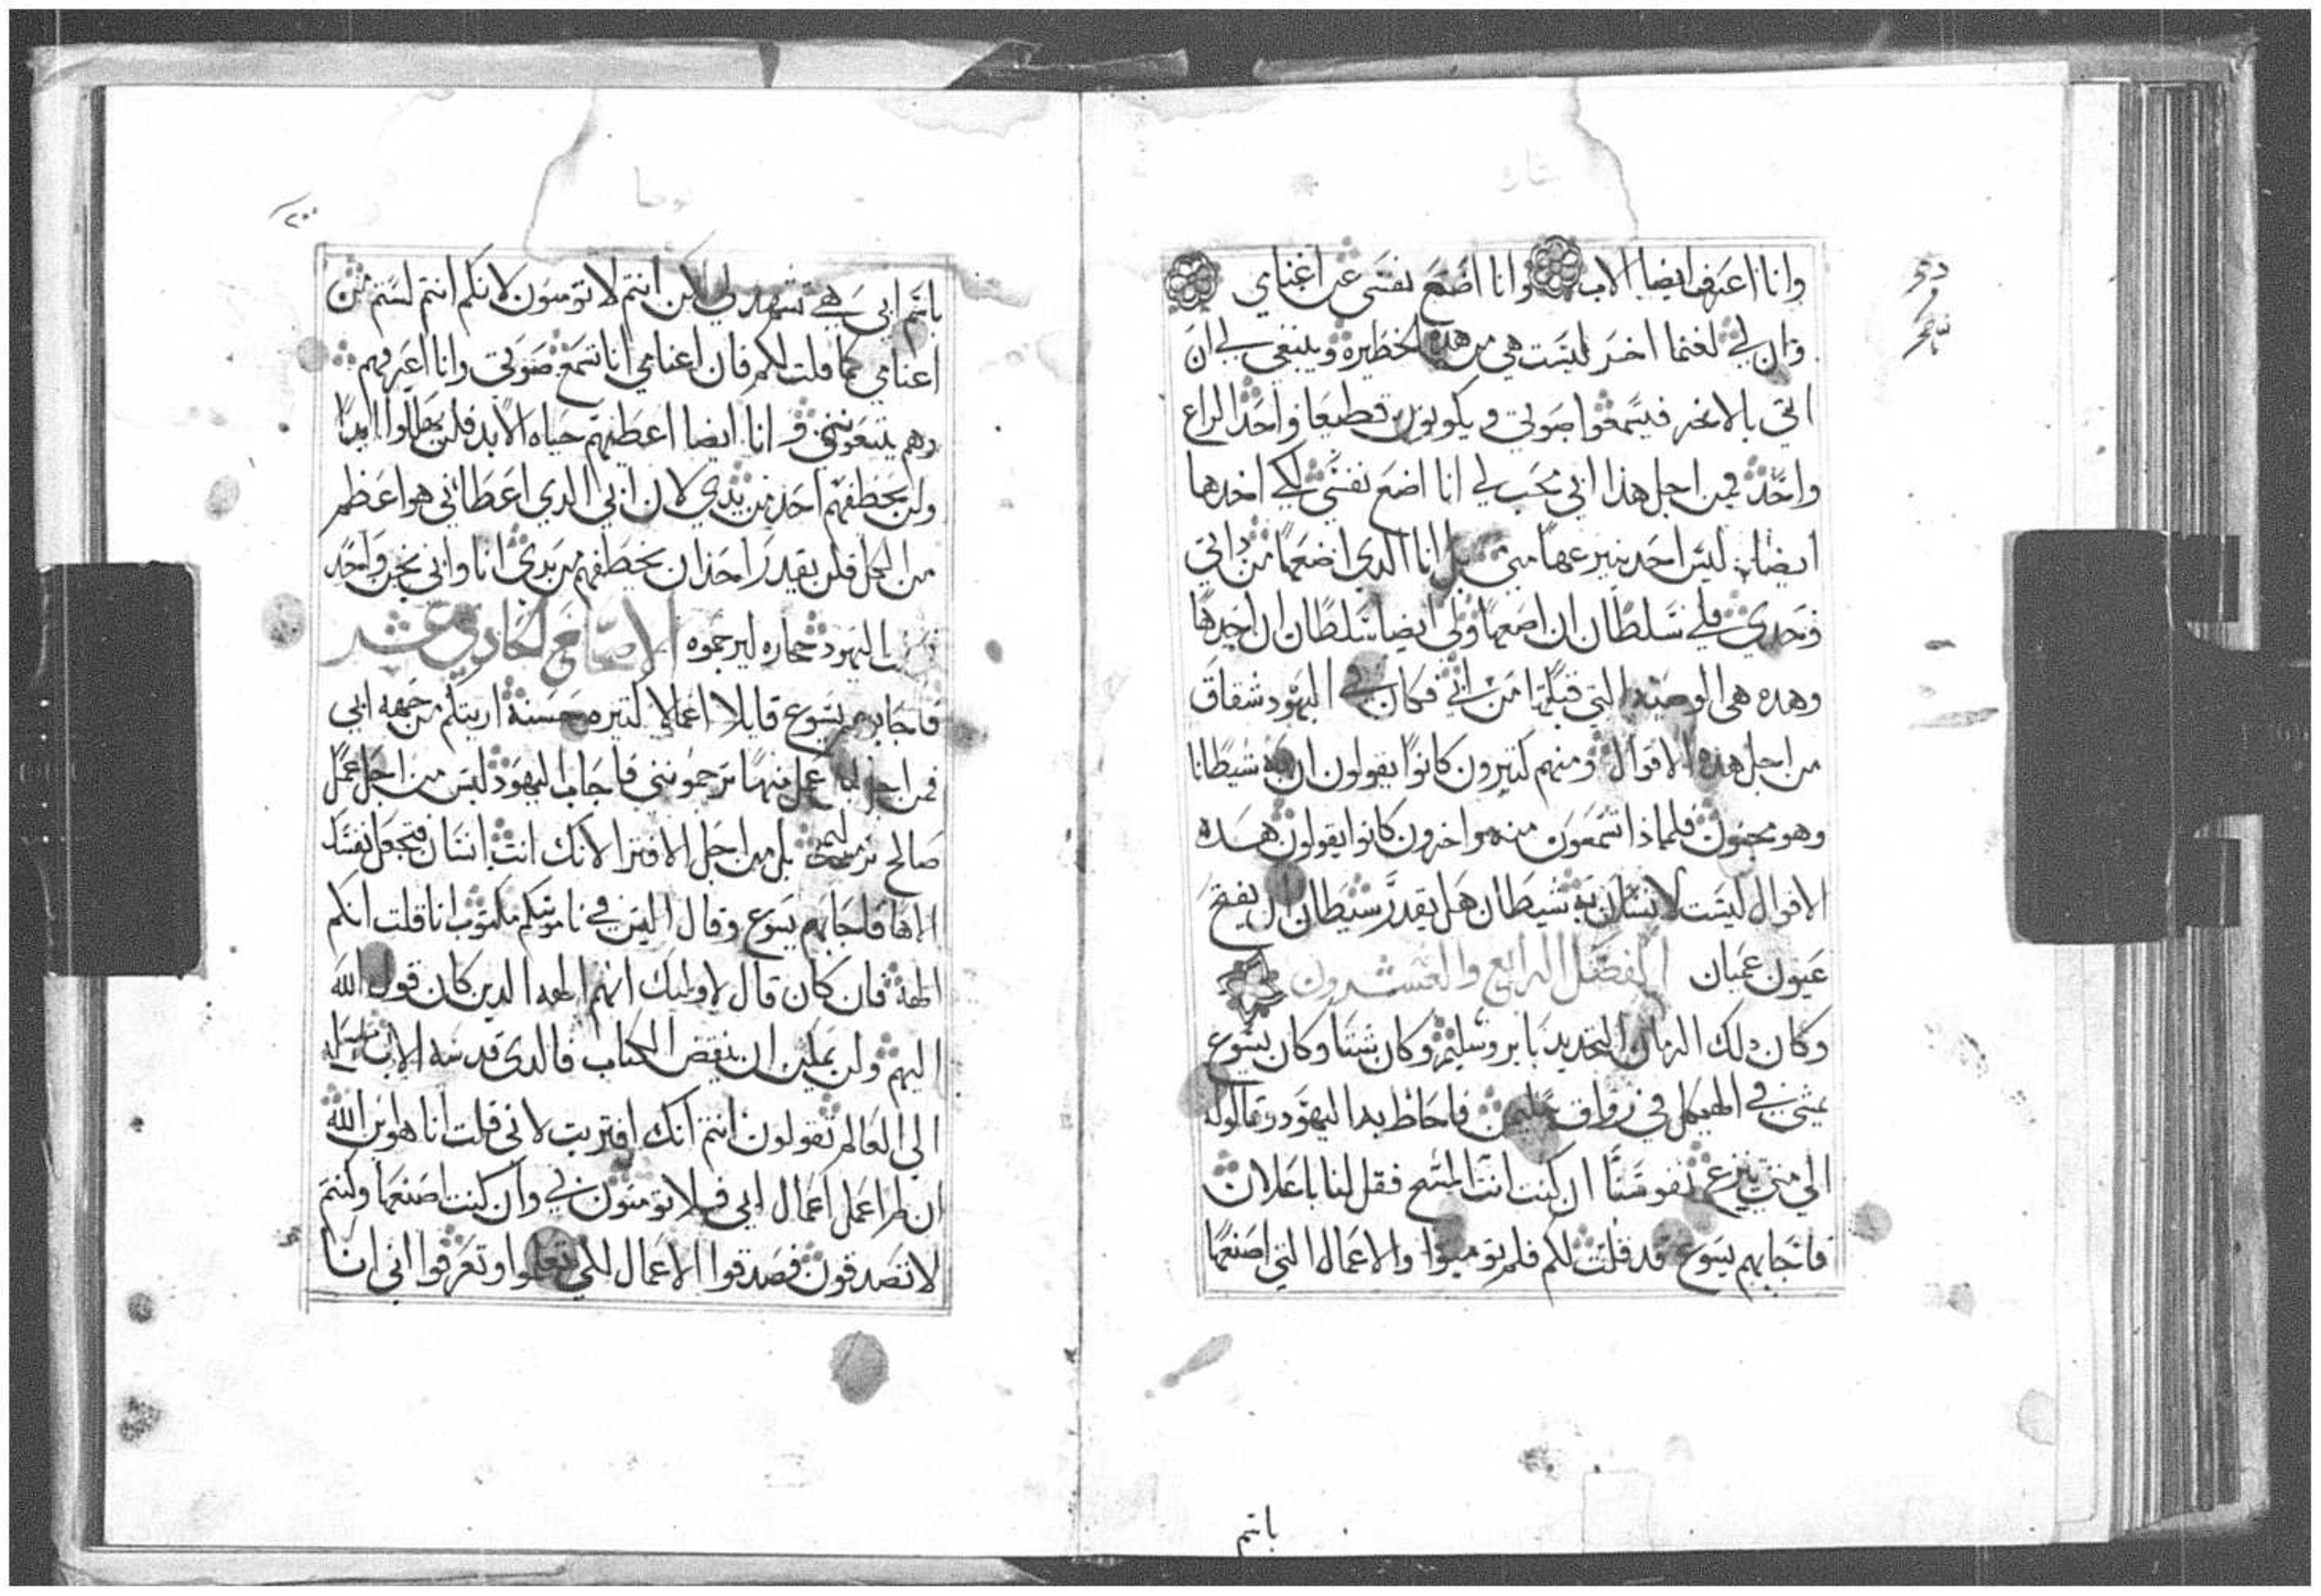 وانا اعرف ايضا الاب وانا اضع نفسي عن اغنامي
وان لي لغنما اخر ليست هي من هذه الحظيره وينبغي لي ان
اتي بالاخر فيسمعوا صوتي ويكونون قطيعا واحدا الراع
واحد فمن اجل هذا ابي محب لي انا اضع نفسي لكي اخدها
ايضا ليس احد ينزعها مني بل انا الدي اضعها من داتي
وحدي فلي سلطان ان اضعها ولي ايضا سلطان ان اخدها
وهده هي الوصيه التي قبلتها من ابي فكان في اليهود شقاق
من اجل هده الاقوال ومنهم كتيرون كانوا يقولون ان به شيطانا
وهو مجنون فلماذا تسمعون منه واخرون كانوا يقولون هده
الاقوال ليست لانسان به شيطان هل يقدر شيطان ان يفتح
عيون عميان الفصل الرابع والعشرون
وكان دلك الزمان التجديد بايروشليم وكان شتا وكان يسوع
يمشي في الهيكل في رواق سليمن فاحاط به اليهود وقالوله
الي متي تنزع نفوسنا ان كنت انت المسيح فقل لنا باعلان
فاجابهم يسوع قد قلت لكم فلم تومنوا والاعمال التي اصنعها
باسم
يوحنا
باسم ابي هي تشهد لي لكن انتم لا تومنون لانكم انتم لستم من
اغنامي كما قلت لكم فان اغنامي انا تسمع صوتي وانا اعرفهم
وهم يتبعونني وانا ايضا اعطيهم حياه الابد فلن يهلكوا ابدا
ولن يخطفهم احد من يدي لان ابي الدي اعطاني هو اعظم
من الكل فلن يقدر احد ان يخطفهم من يدي انا وابي نحن واحد
اليهود حجاره ليرجموه الاصحاح الحادي عشر
فاجابهم يسوع قايلا اعمالا كتيره حسنة اريتكم من جهه ابي
فمن اجل اي عمل منها ترجمونني فاجاب اليهود ليس من اجل عمل
صالح نرجمك بل من اجل الافترا لانك انت انسان فتجعل نفسك
الاها فاجابهم يسوع وقال اليس في ناموسكم مكتوب انا قلت انكم
الهة فان كان قال لاوليك انهم الهه الدين كان قول الله
اليهم ولن يمكن ان ينقض الكتاب فالدي قدسه الاب وارسله
الي العالم تقولون انتم انك افتريت لاني قلت انا هو ابن الله
ان لم اعمل اعمال ابي فلا تومنون بي وان كنت اصنعها وكنتم
لا تصدقون فصدقوا الاعمال لكي تعلموا وتعرفوا اني انا